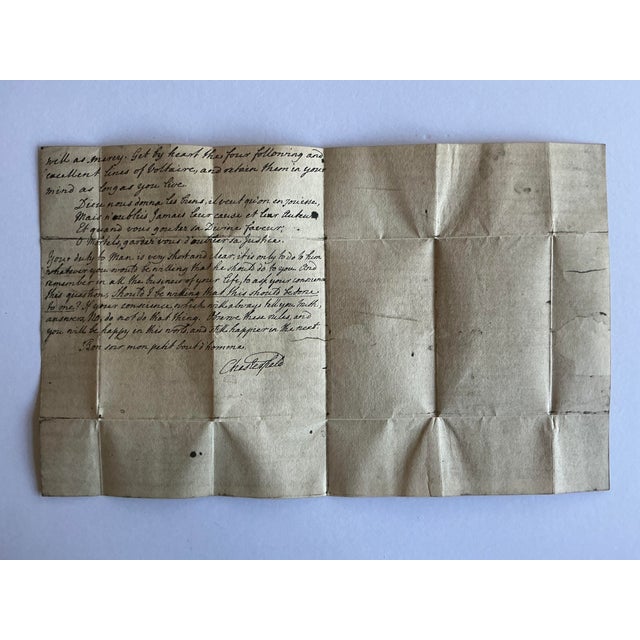 well as mercy. Get by heart the four following and
excellent lines of Voltaire, and retain them in your
mind as long as you live.
Dieu nous donna les biens, il veut qu'on en jouisse,
Mais n'oubliés jamais leur cause et leur Auteur
Et quand vous gouter sa Divine faveur,
O Mortels, gardez vous d'oublier sa Justice.
Your duty to Man is very short and clear, it is only to do to him
whatever you would be willing that he should do to you. And
remember in all the business of your Life, to ask your conscience
this question, Should I be willing that this should be done
to me? If your conscience, which will always tell you truth,
answers No, do not do that thing. Observe these rules, and
you will be happy in this world, and still happier in the next.
Bon soir mon petit bout d'homme.
Chesterfield